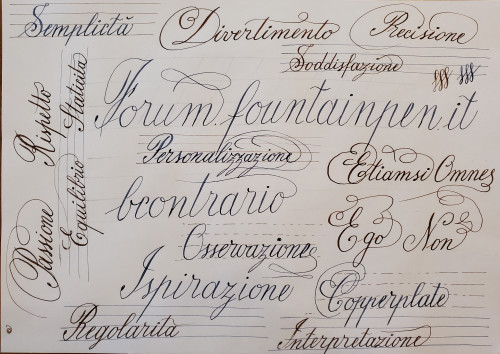 Semplicità
Divertimento
Precisione
Soddisfazione
Rispetto
Staticità
Forum fountainpen.it
Personalizzazione
Etiamsi Omnes
bcontrario
Ego Non
Passione
Equilibrio
Osservazione
Ispirazione
Copperplate
Regolarità
Interpretazione